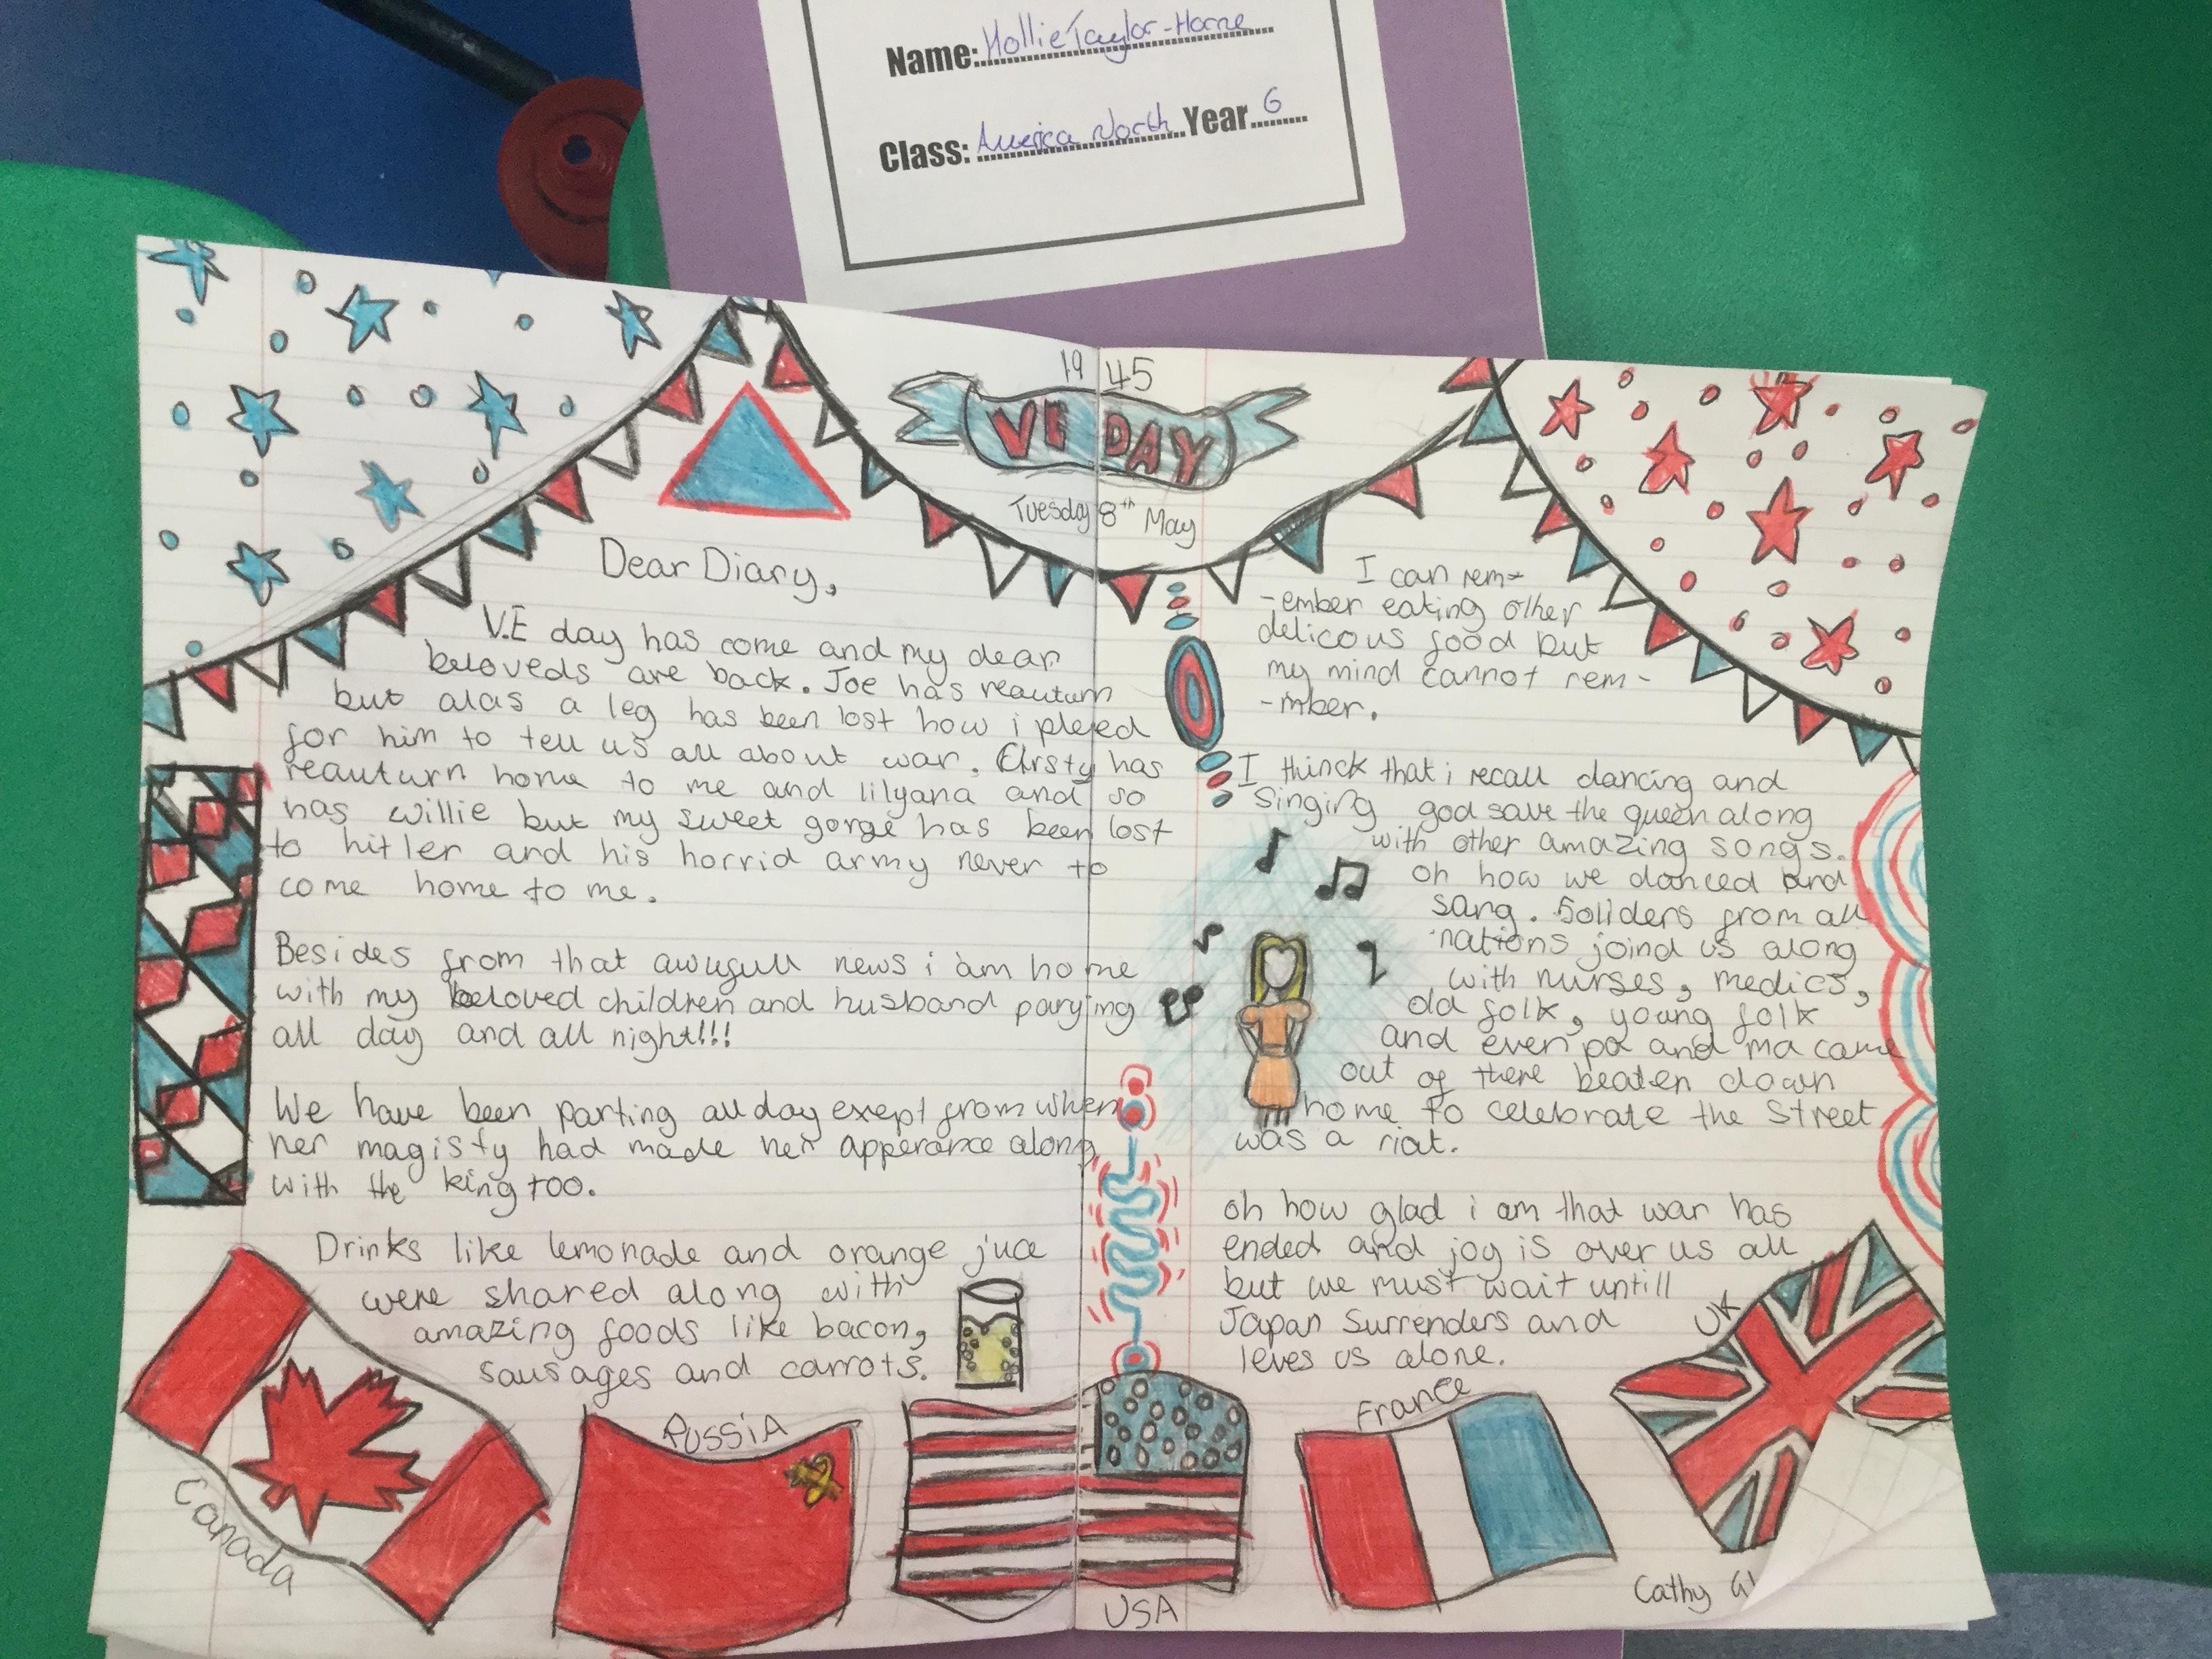 Name: Hollie Taylor-Horne
Class: America North Year 6
1945
VE DAY
Tuesday 8th May
Dear Diary,
V.E day has come and my dear
beloveds are back. Joe has reauturn
but alas a leg has been lost how i pleyed
for him to tell us all about war. has
reauturn home to me and lilyana and so
has willie but my sweet gorge has been lost
to hitler and his horrid army never to
come home to me.
Besides from that awufull news i am home
with my beloved children and husband parying
all day and all night!!!
We have been parting all day exept from when
her magisty had made her apperance along
with the king too.
Drinks like lemonade and orange juce
were shared along with
amazing foods like bacon,
sausages and carrots.
I can rem-
-ember eating other
delicous food but
my mind cannot rem-
-mber.
I thinck that i recall dancing and
singing god save the queen along
with other amazing songs.
oh how we danced and
sang. Soliders from all
nations joind us along
with nurses, medics,
old folk, young folk
and even pa and ma came
out of there beaten down
home to celebrate the street
was a riot.
oh how glad i am that war has
ended and joy is over us all
but we must wait untill
Japan surrenders and
leves us alone.
Canada
RUSSIA
USA
France
UK
Cathy